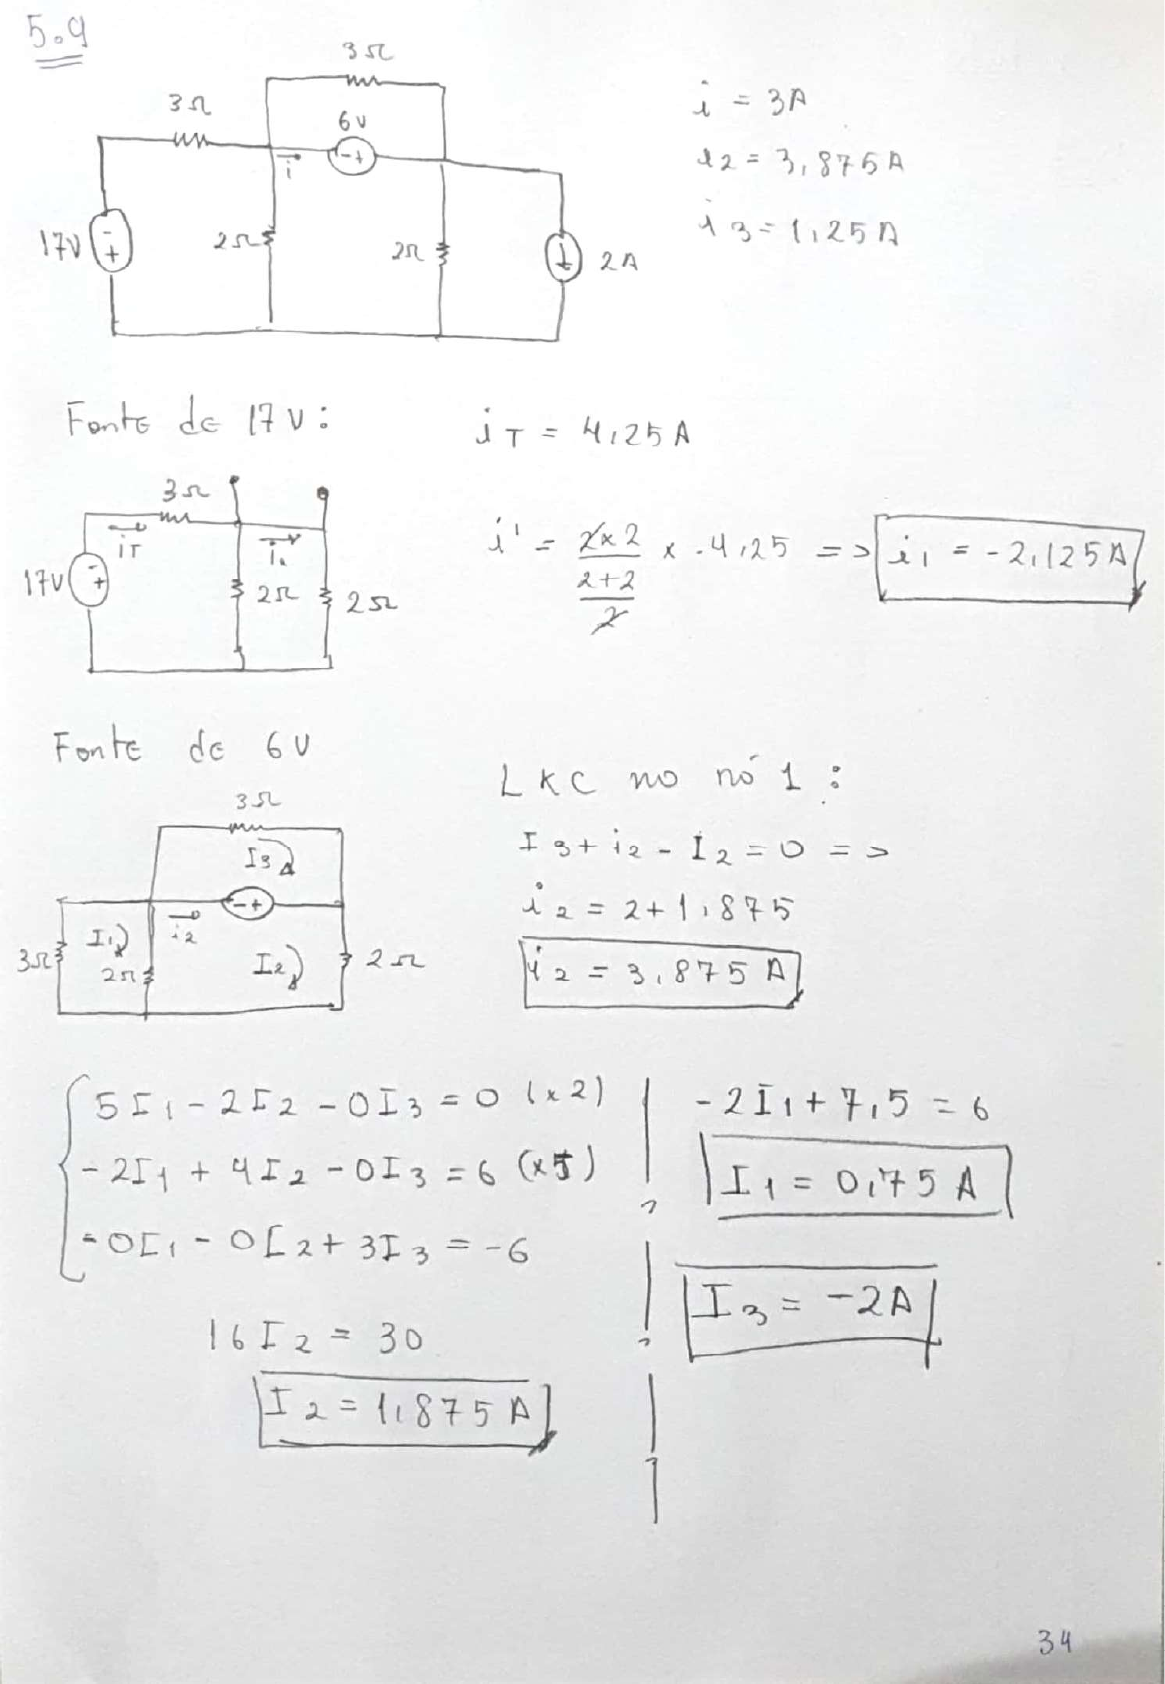 5.9
3Ω
3Ω
6V
- +
i
17V
-
+
2Ω
2Ω
2A
i = 3A
i2 = 3,875A
i3 = 1,25A
Fonte de 17V:
iT = 4,25A
3Ω
iT
i1
17V
-
+
2Ω
2Ω
i' = 2x2 / 2+2 / 2 x -4,25 => i1 = -2,125A
Fonte de 6V
3Ω
I3
- +
i2
3Ω
I1
2Ω
I2
2Ω
LKC no nó 1:
I3 + i2 - I2 = 0 =>
i2 = 2 + 1,875
i2 = 3,875 A
5I1 - 2I2 - 0I3 = 0 (x2)
-2I1 + 4I2 - 0I3 = 6 (x5)
-0I1 - 0I2 + 3I3 = -6
16I2 = 30
I2 = 1,875 A
-2I1 + 7,5 = 6
I1 = 0,75 A
I3 = -2A
34